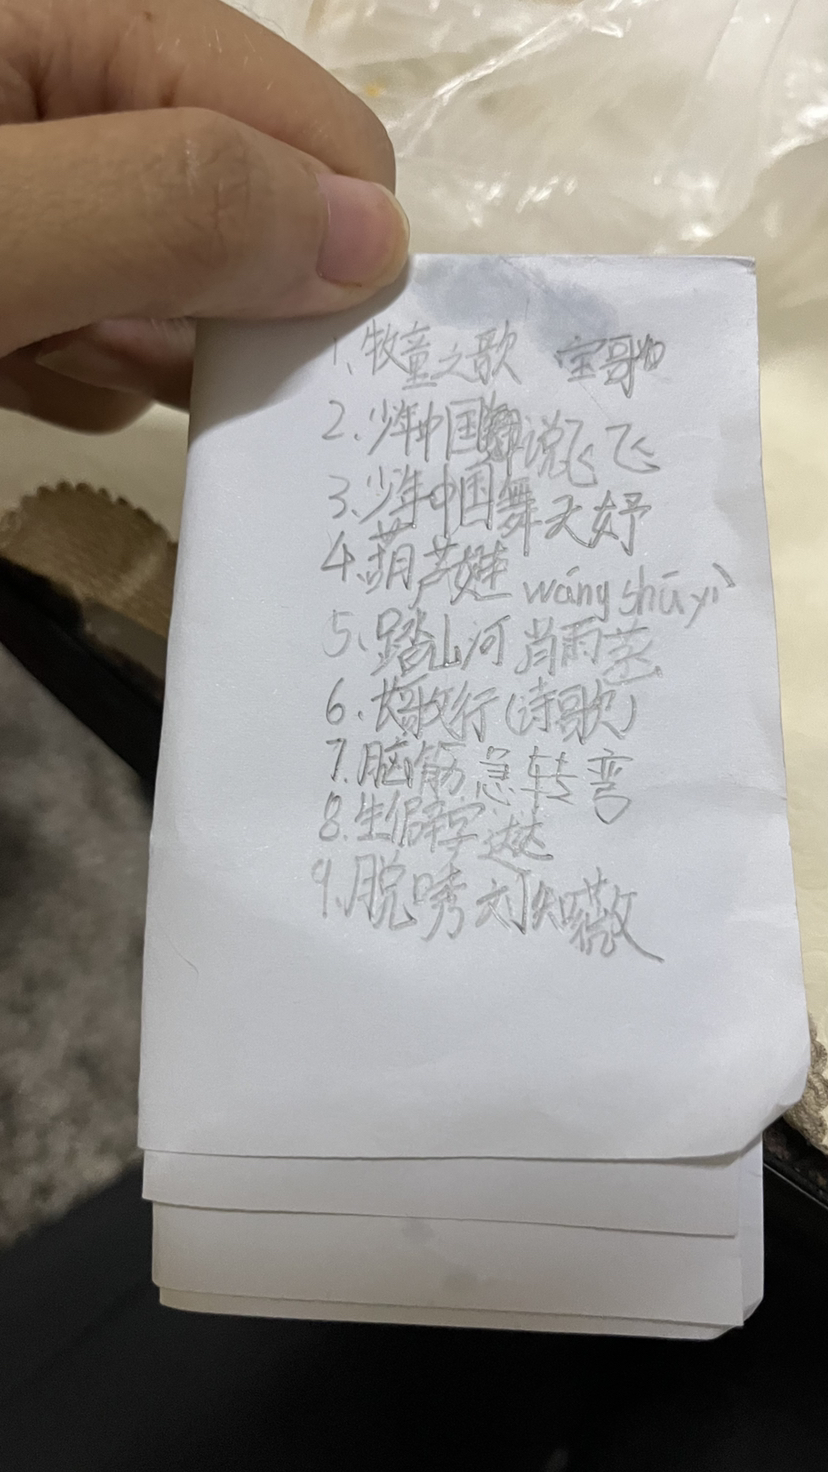 1、牧童之歌 宝哥
2、少年中国说飞飞
3、少年中国舞天妤
4、葫芦娃 wáng shū yì
5、踏山河 肖雨
6、长歌行(诗歌)
7、脑筋急转弯
8、生僻字 达
9、脱 刘知薇